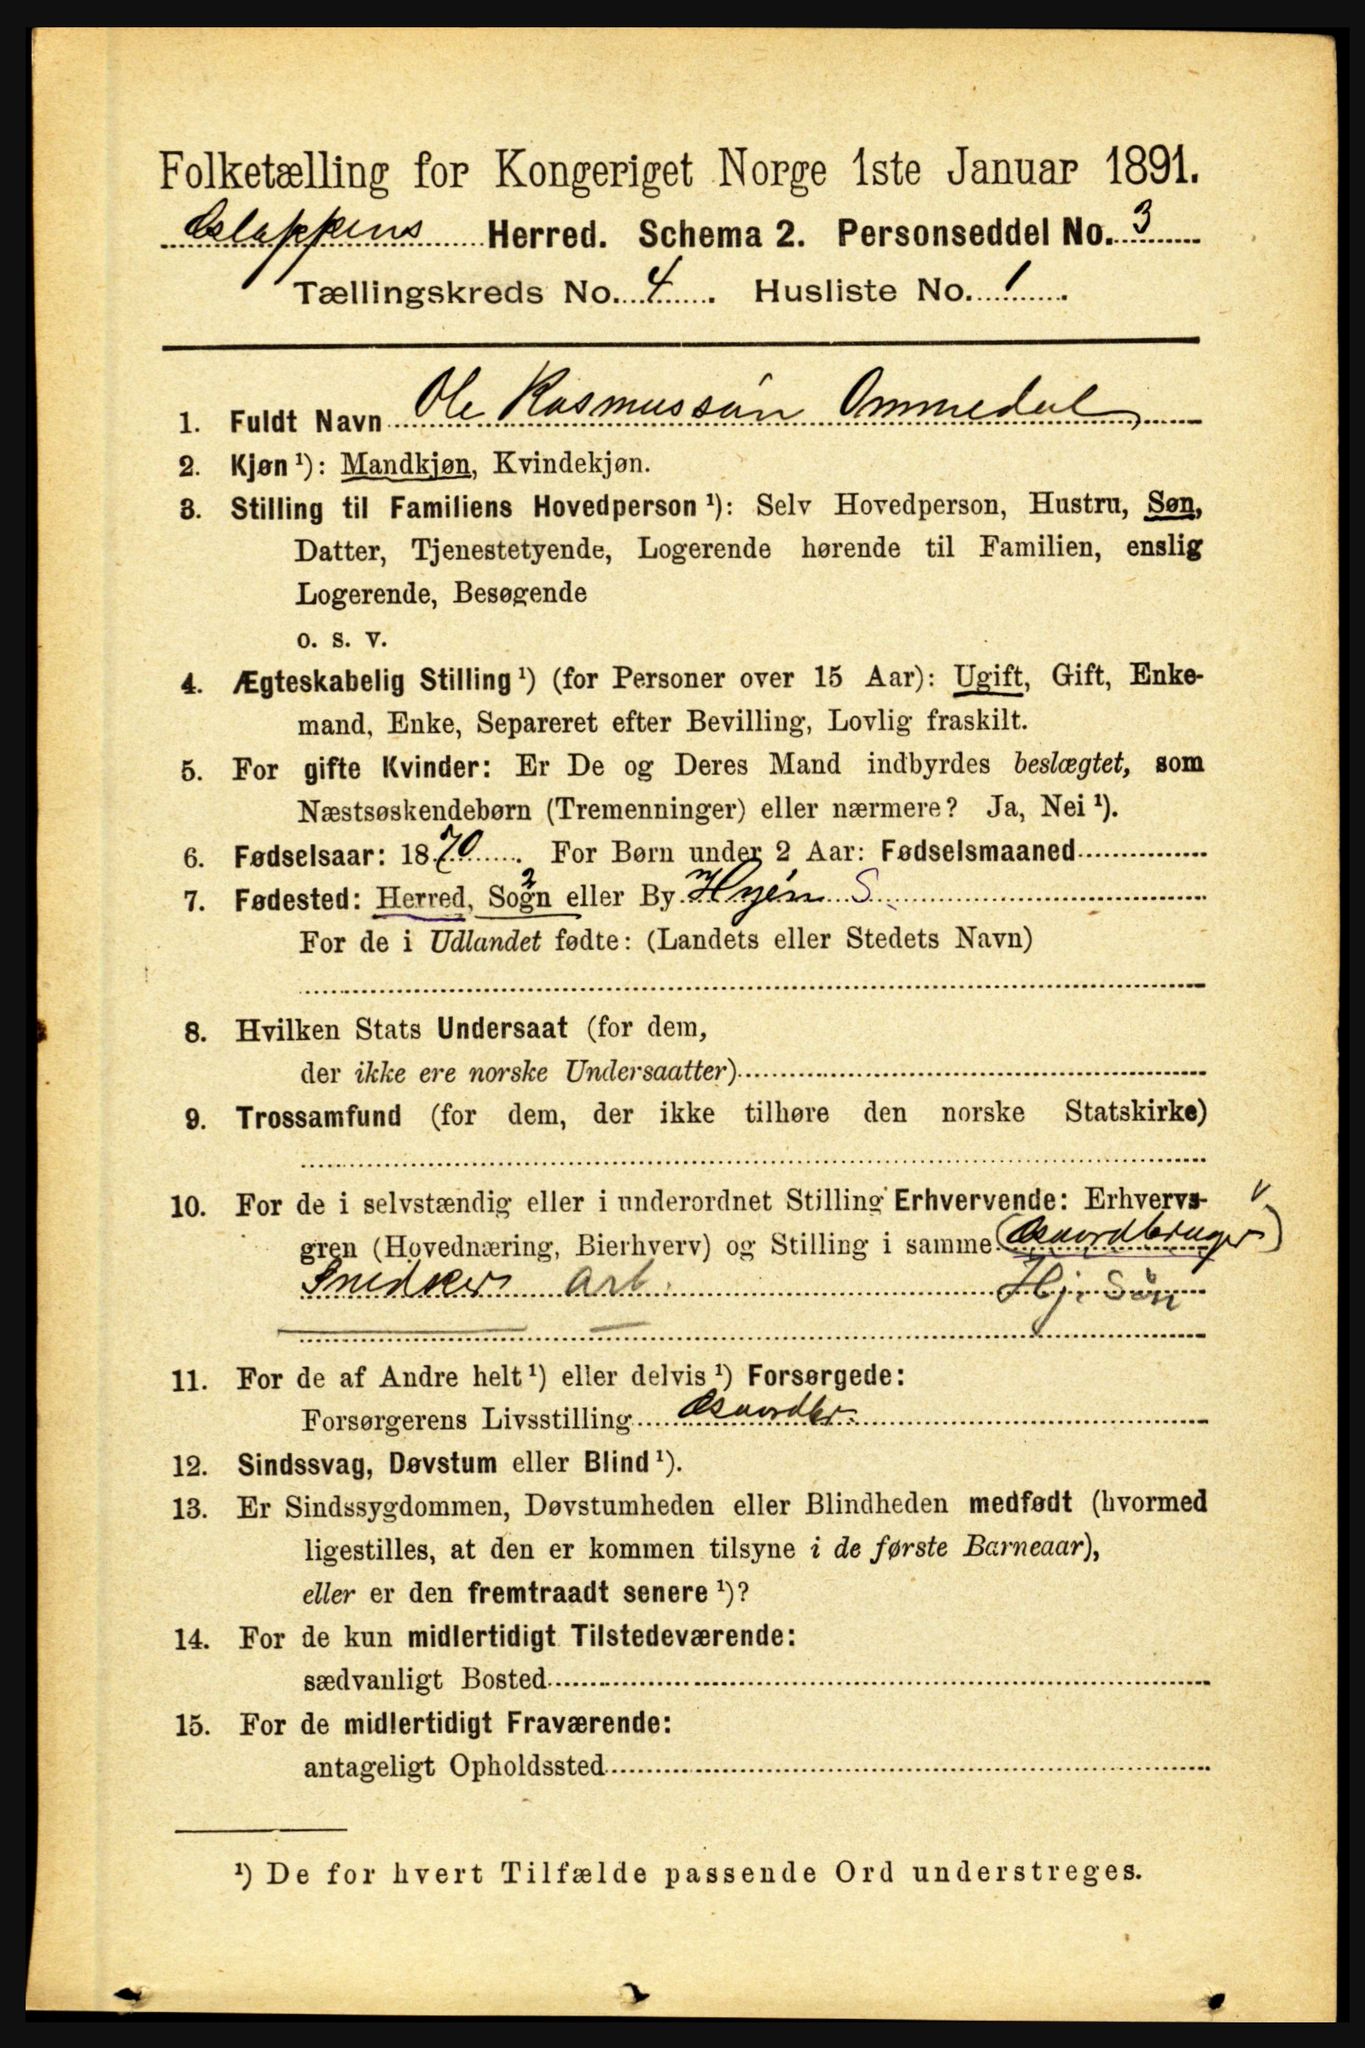 Folketælling for Kongeriget Norge 1ste Januar 1891.
Gloppens Herred. Schema 2. Personseddel No. 3
Tællingskreds No. 4. Husliste No. 1.
1. Fuldt Navn Ole Rasmussøn Ommedal
2. Kjøn ¹): Mandkjøn, Kvindekjøn.
3. Stilling til Familiens Hovedperson ¹): Selv Hovedperson, Hustru, Søn,
Datter, Tjenestetyende, Logerende hørende til Familien, enslig
Logerende, Besøgende
o. s. v.
4. Ægteskabelig Stilling ¹) (for Personer over 15 Aar): Ugift, Gift, Enke-
mand, Enke, Separeret efter Bevilling, Lovlig fraskilt.
5. For gifte Kvinder: Er De og Deres Mand indbyrdes beslægtet, som
Næstsøskendebørn (Tremenninger) eller nærmere? Ja, Nei ¹).
6. Fødselsaar: 1870. For Børn under 2 Aar: Fødselsmaaned
2
7. Fødested: Herred, Sogn eller By Hyen S.
For de i Udlandet fødte: (Landets eller Stedets Navn)
8. Hvilken Stats Undersaat (for dem,
der ikke ere norske Undersaatter)
9. Trossamfund (for dem, der ikke tilhøre den norske Statskirke)
10. For de i selvstændig eller i underordnet Stilling Erhvervende: Erhvervs-
gren (Hovednæring, Bierhverv) og Stilling i samme (Gaardbruger)
Snedker arb. Hj. Søn
11. For de af Andre helt ¹) eller delvis ¹) Forsørgede:
Forsørgerens Livsstilling Gaardbr.
12. Sindssvag, Døvstum eller Blind ¹).
13. Er Sindssygdommen, Døvstumheden eller Blindheden medfødt (hvormed
ligestilles, at den er kommen tilsyne i de første Barneaar),
eller er den fremtraadt senere ¹)?
14. For de kun midlertidigt Tilstedeværende:
sædvanligt Bosted
15. For de midlertidigt Fraværende:
antageligt Opholdssted
¹) De for hvert Tilfælde passende Ord understreges.